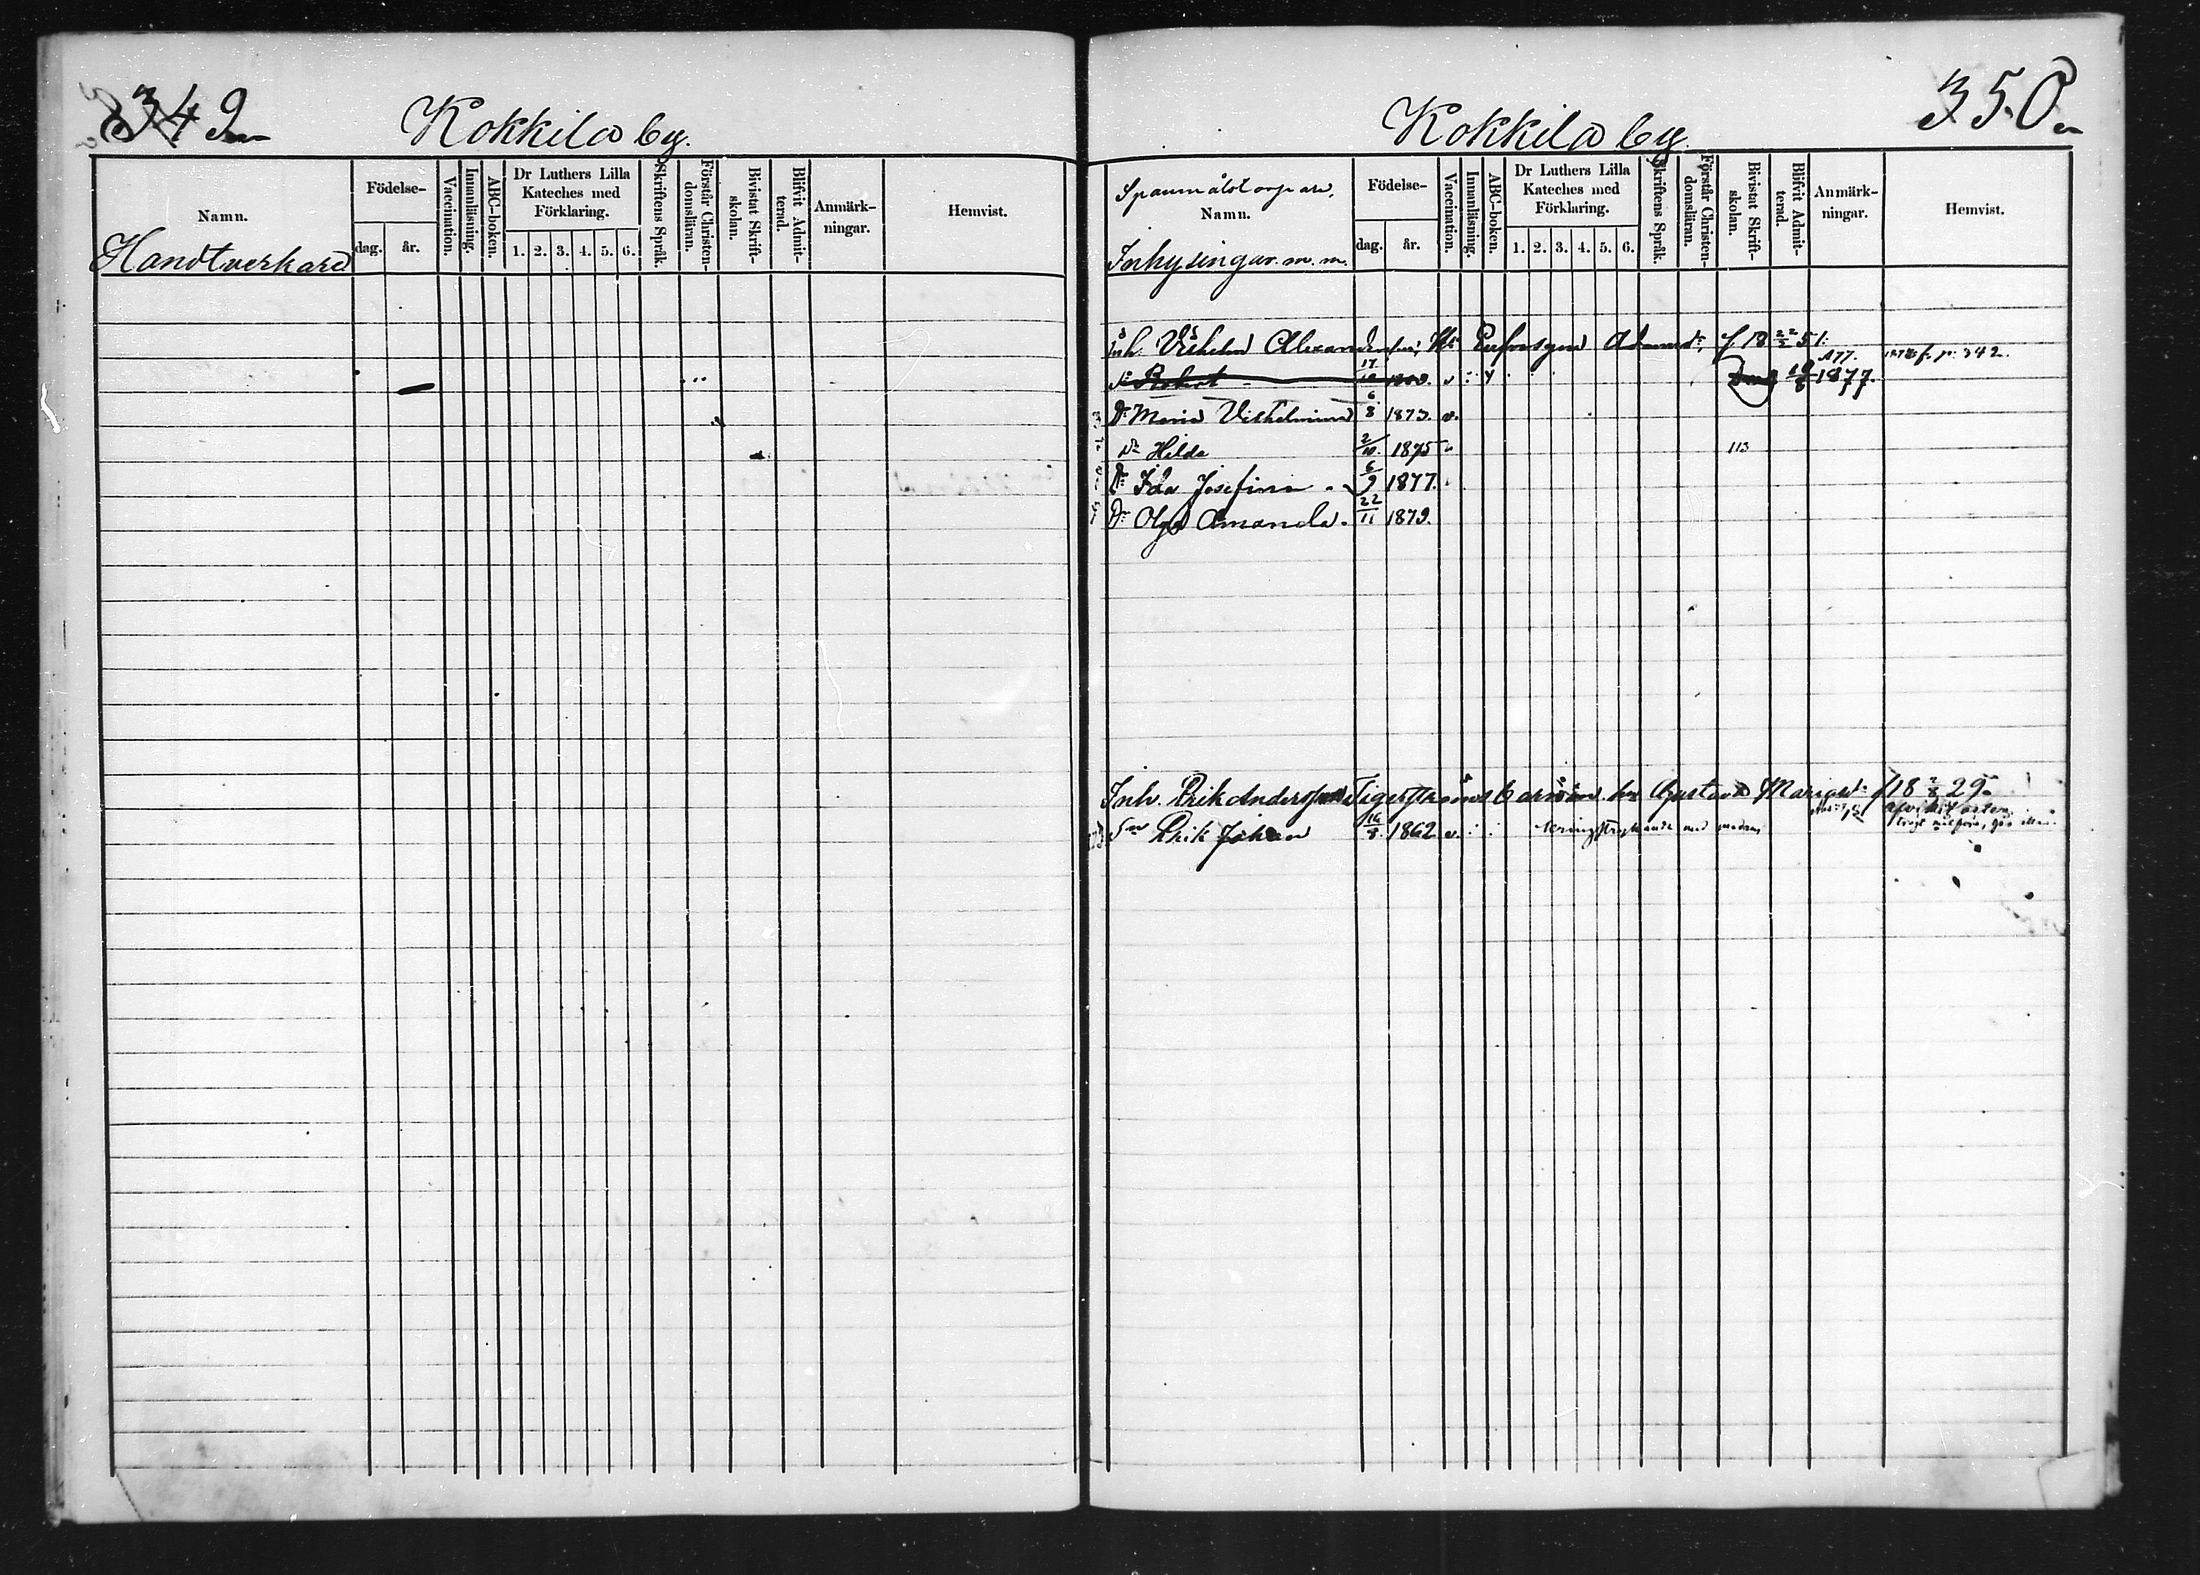 349
Kokkila by.
Namn.
Handtverkare
Födelse-
dag. år.
Vaccination.
Innanläsning.
ABC-boken.
Dr Luthers Lilla
Kateches med
Förklaring.
1. 2. 3. 4. 5. 6.
Skriftens Språk.
Förstår Christen-
domsläran.
Bivistat Skrift-
skolan.
Blifvit Admit-
terad.
Anmärk-
ningar.
Hemvist.
350
Kokkila by.
Spanmålstorpare,
Namn.
Inhysingar m. m.
Födelse-
dag. år.
Vaccination.
Innanläsning.
ABC-boken.
Dr Luthers Lilla
Kateches med
Förklaring.
1. 2. 3. 4. 5. 6.
Skriftens Språk.
Förstår Christen-
domsläran.
Bivistat Skrift-
skolan.
Blifvit Admit-
terad.
Anmärk-
ningar.
Hemvist.
Inh. Vilhelm f 18 22/2 51.
Robert 1877. p. 342.
Dr Maria Vilhelmina 6/8 1873. v.
Dr Hilda 2/10 1875 113
Dr Ida Josefina 6/9 1877.
Dr Olga Amanda. 22/11 1879.
Inh. Erik Gustava f 18 2/8 29
Sn Erik Johan 16/8 1862 v. med modren